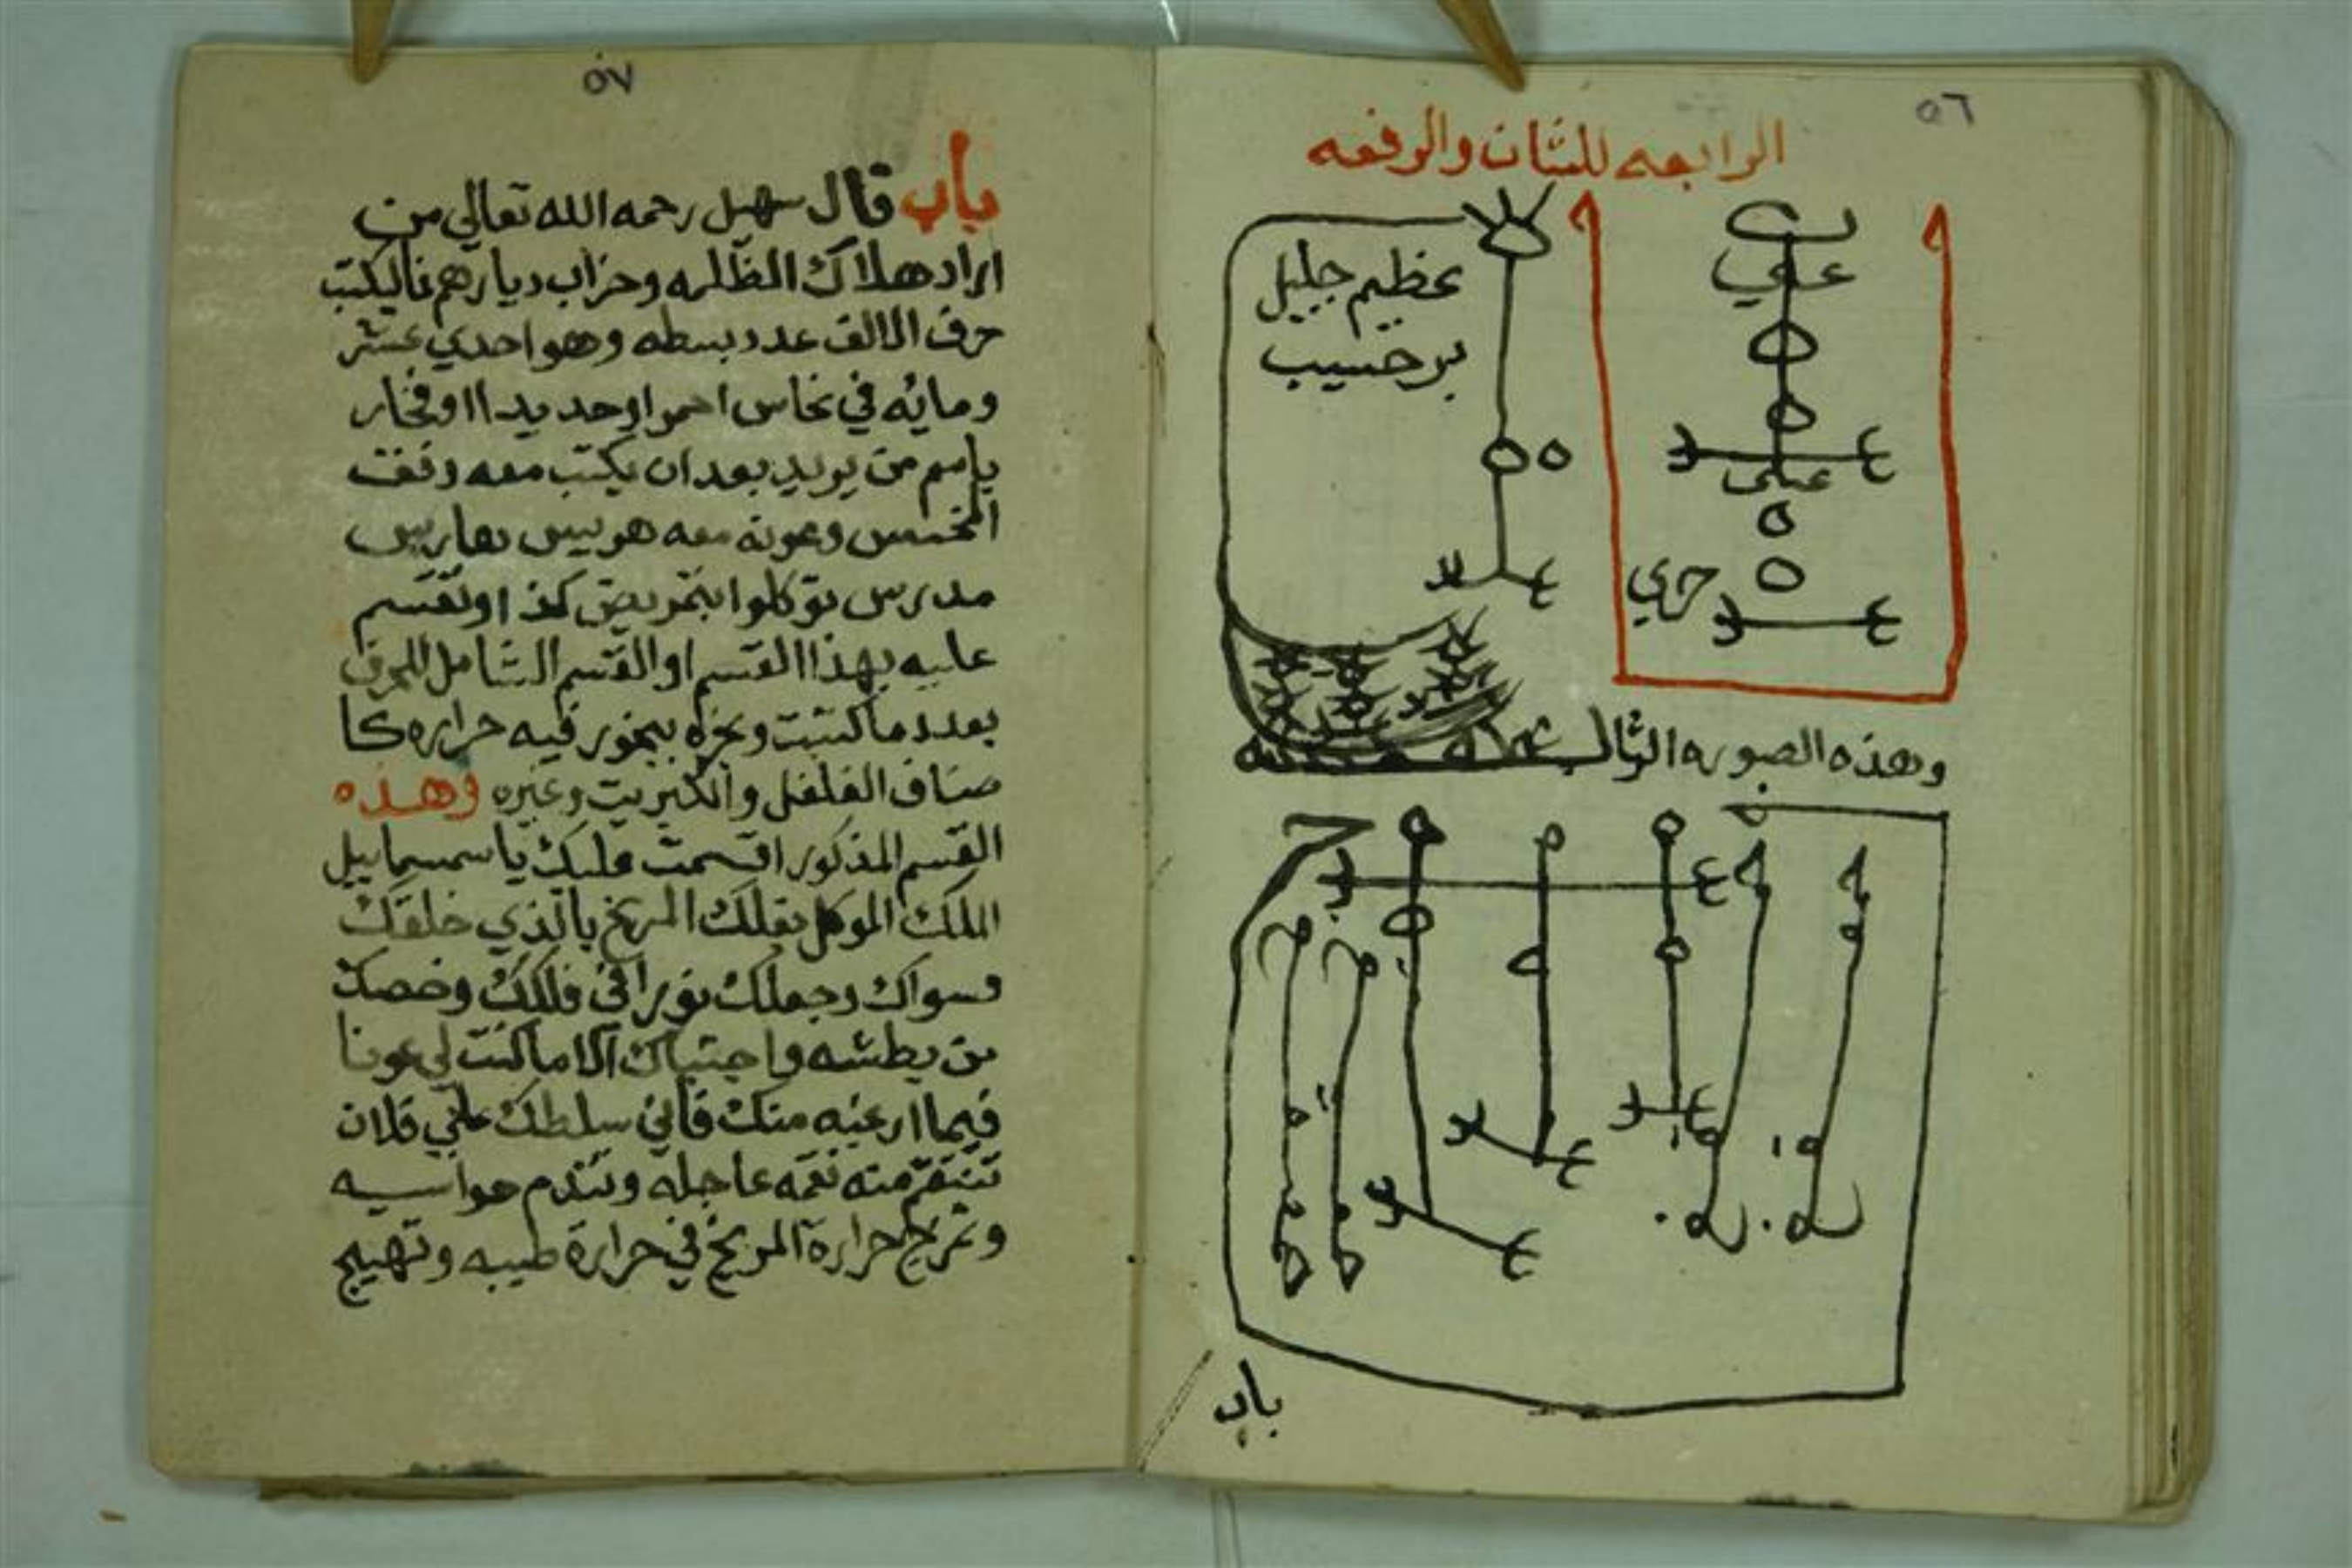 ٥٦
الرابعه للشات والرفعه
علي
عظيم جليل
برحسيب
على
حري
وهذه الصوره الثالـ
باب
٥٧
باب قال سهيل رحمه الله تعالي من
اراد هلاك الظلمه وخراب ديارهم فاليكتب
حرف الالف عدد بسطه وهو احدي عشر
ومايه في نحاس احمر او حديد ا او فخار
باسم من يريد بعد ان يكتب معه وفق
المخمس وعونه معه هربيس
توكلوا بتمريض كذا وتقسم
عليه بهذا القسم او القسم الشامل للحرف
بعدد ما كتبت وبخره ببخور فيه حراره كا
صناف الفلفل والكبريت وغيره وهذه
القسم المذكور اقسمت عليك يا سمسماييل
الملك الموكل بفلك المريخ بالذي خلقك
وسواك وجعلك نورا في فلكك وخصك
من بطشه واجتباك الا ما كنت لي عونا
فيما ارغبه منك فاني سلطك علي فلان
تنتقم منه نقمه عاجله وتندم حواسيه
وتمزج حرارة المريخ في حرارة طيبه وتهيج